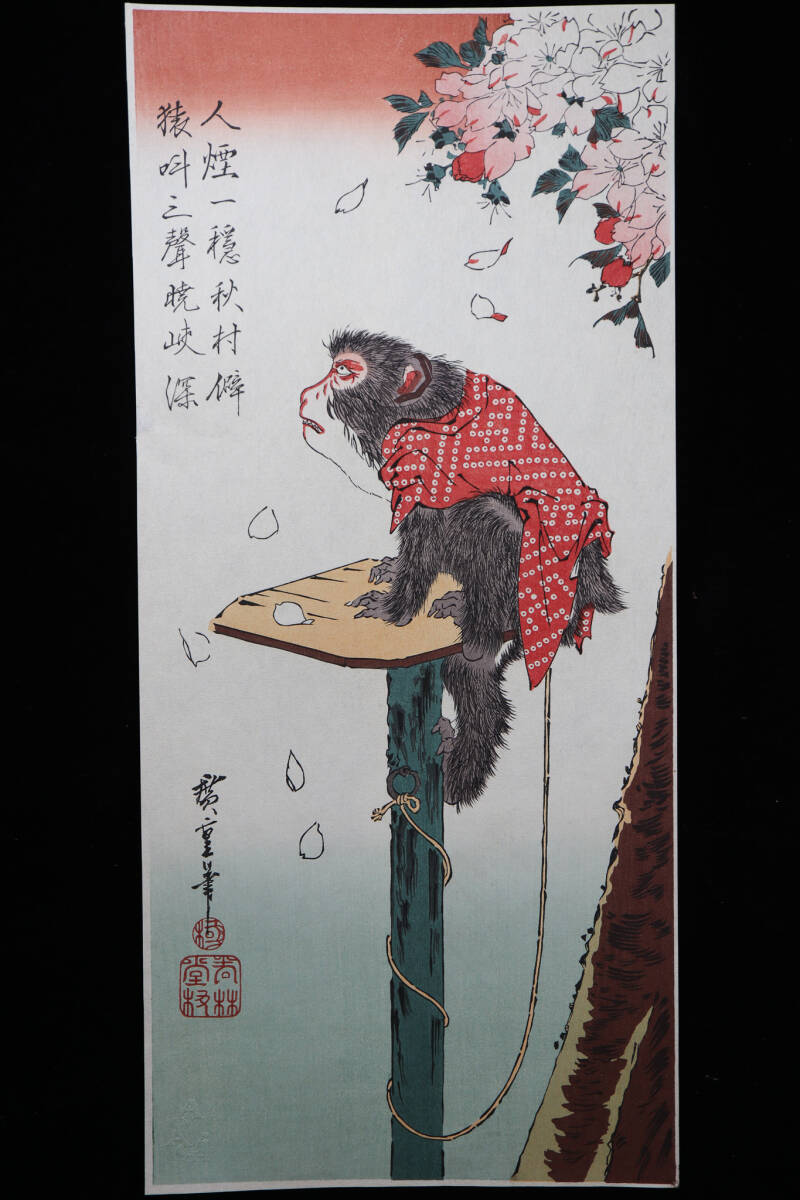 人煙一穏秋村僻
猿叫三聲暁峡深
廣重筆
極
若林
堂梓